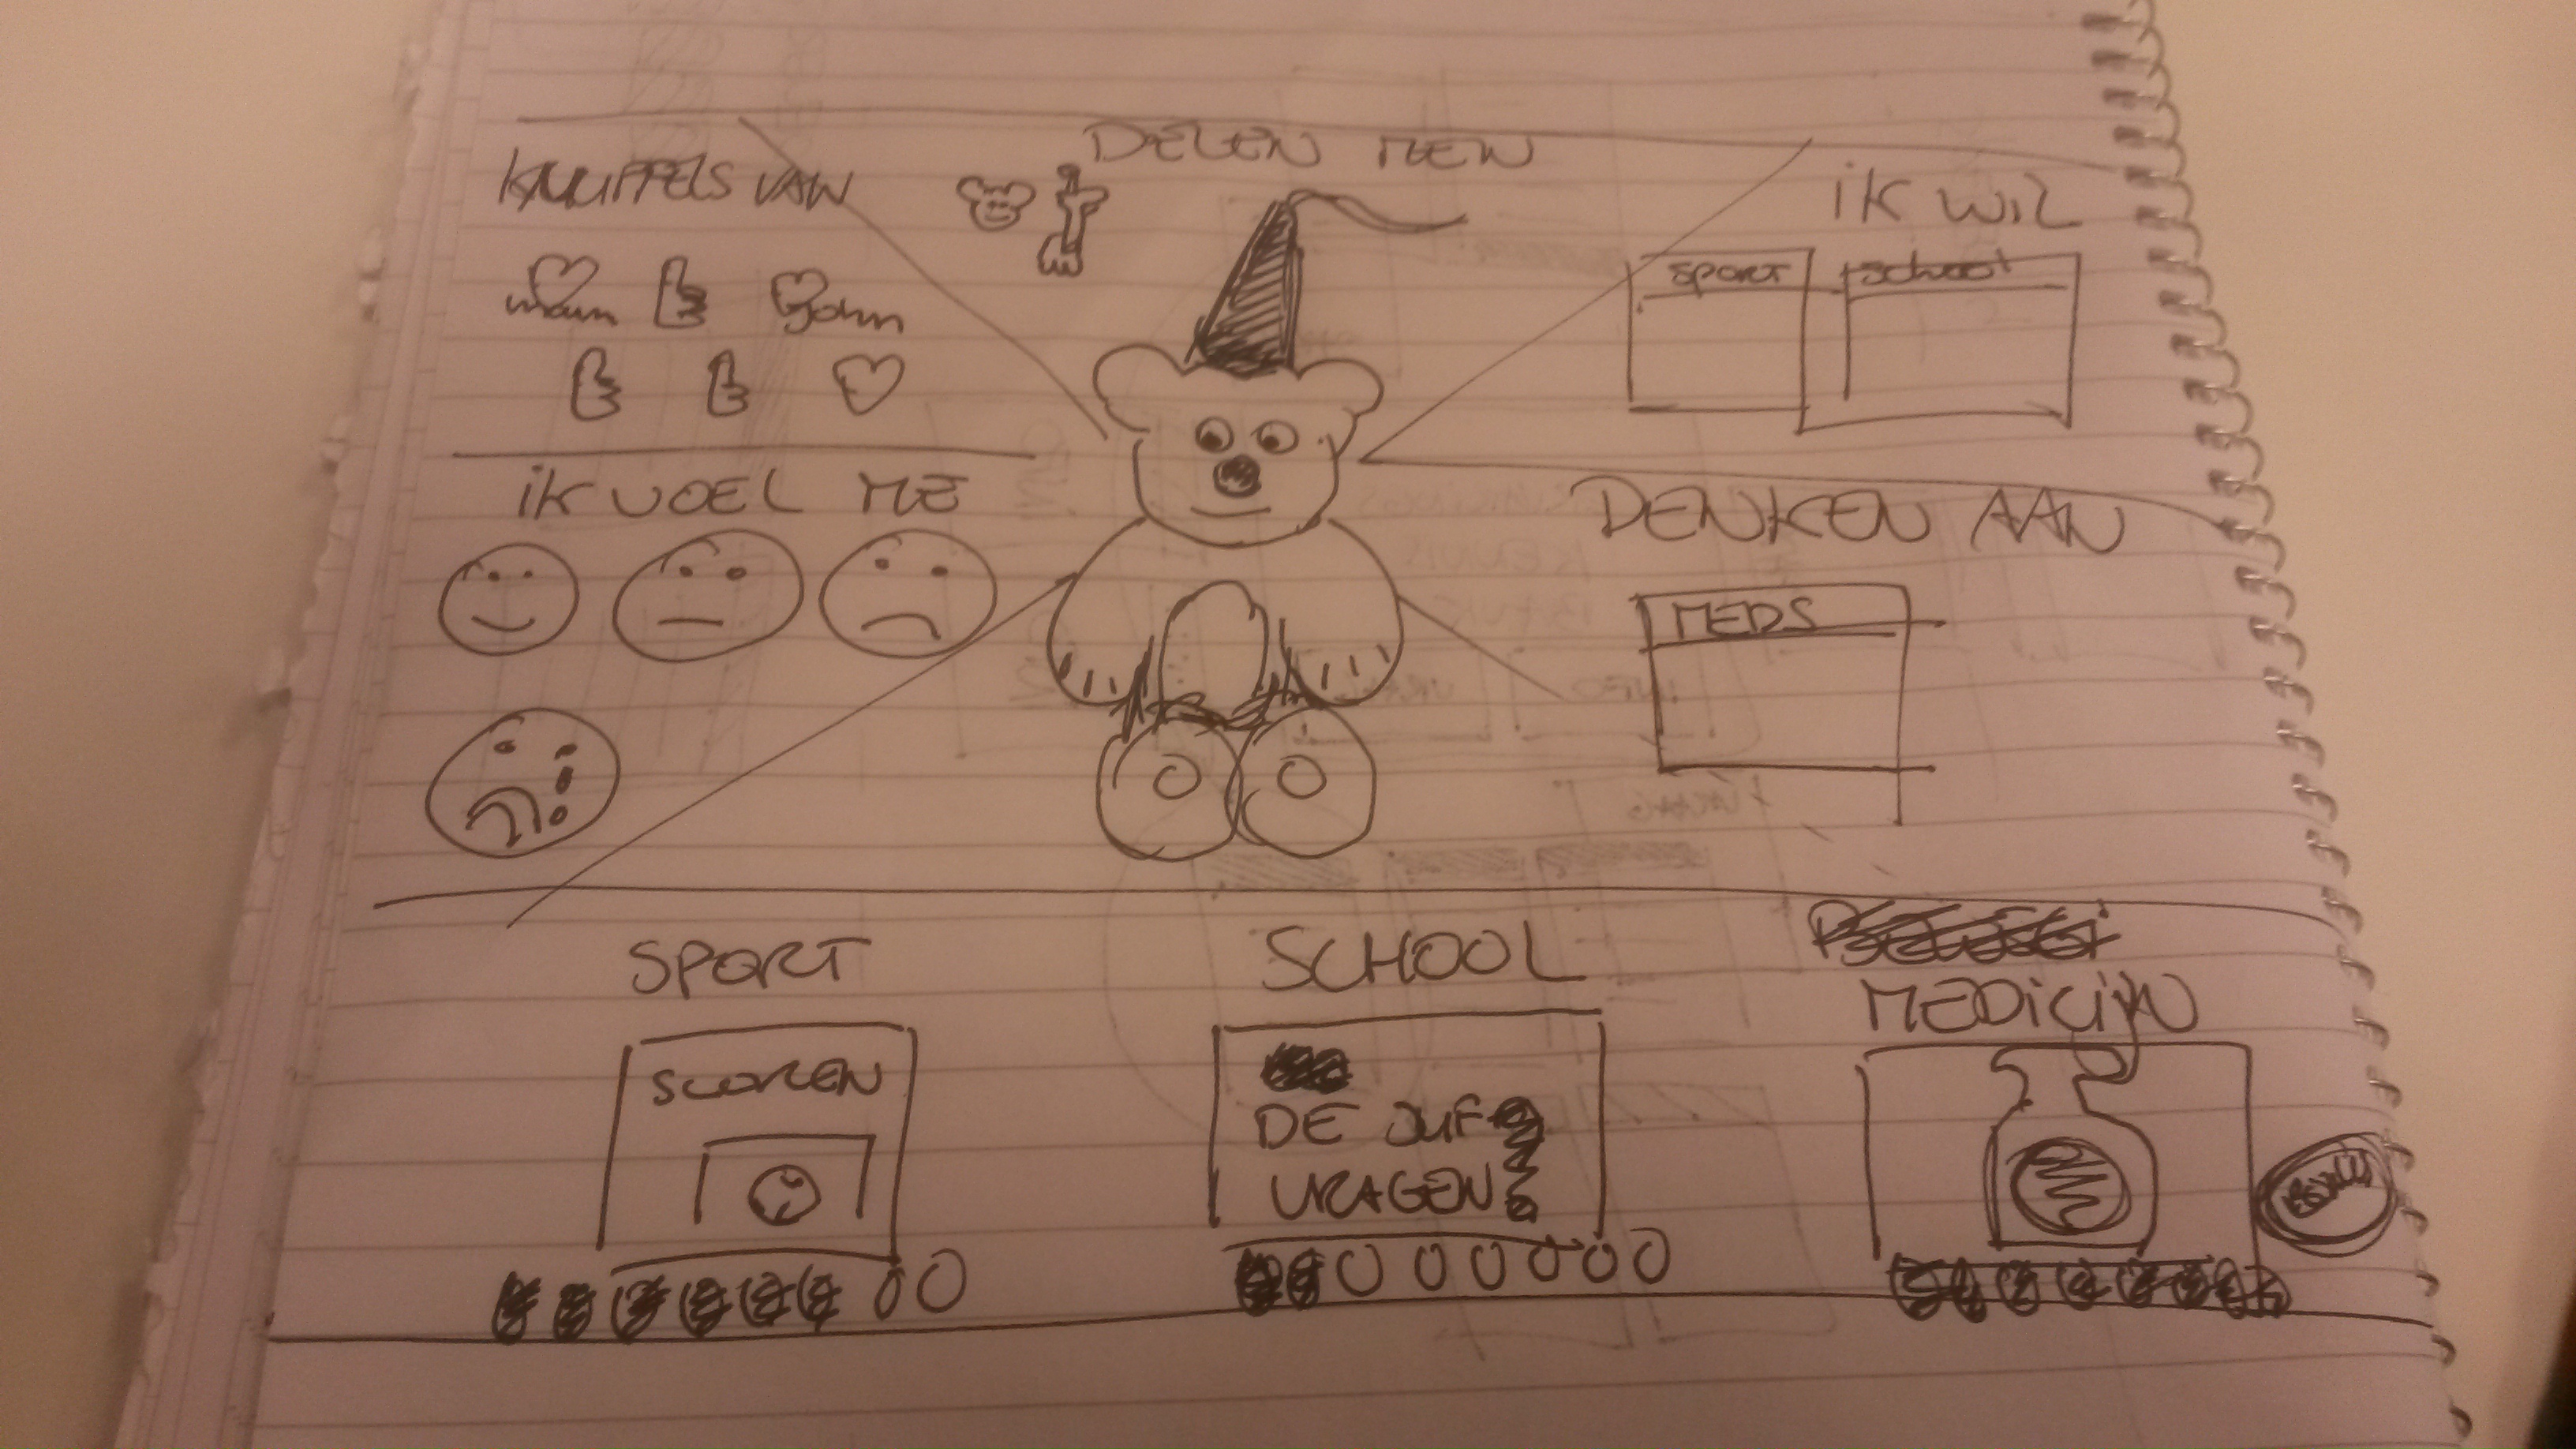 DELEN MEN
KNUFFELS VAN
IK WIL
mam
John
SPORT
School
IK VOEL ME
DENKEN AAN
MEDS
SPORT
SCHOOL
MEDICIJN
SCOREN
DE JUF
VRAGEN